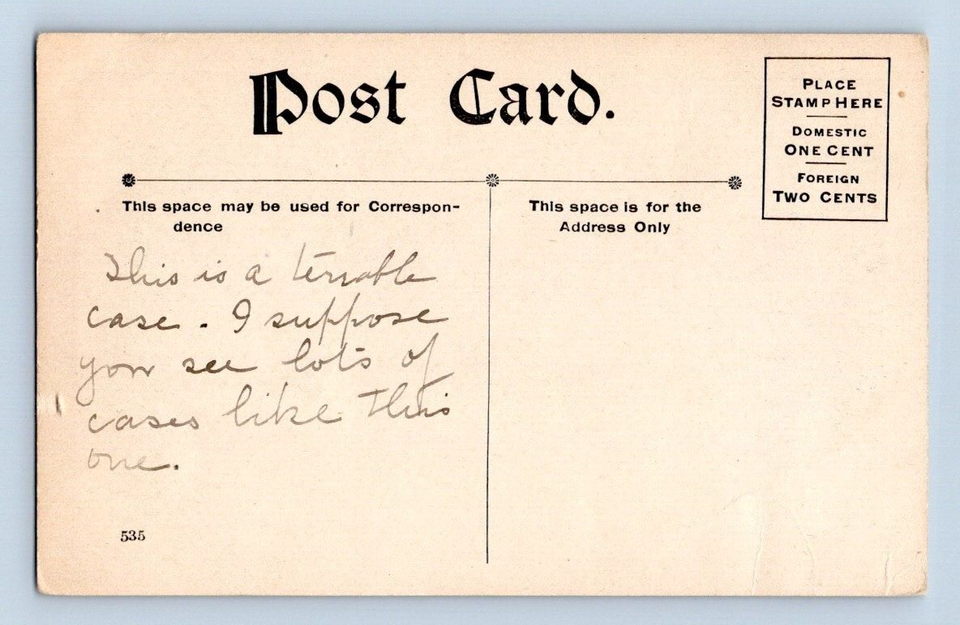 Post Card.
PLACE
STAMP HERE
DOMESTIC
ONE CENT
FOREIGN
TWO CENTS
This space may be used for Correspon-
dence
This space is for the
Address Only
This is a terrable
case. I suppose
you see lots of
cases like this
one.
535